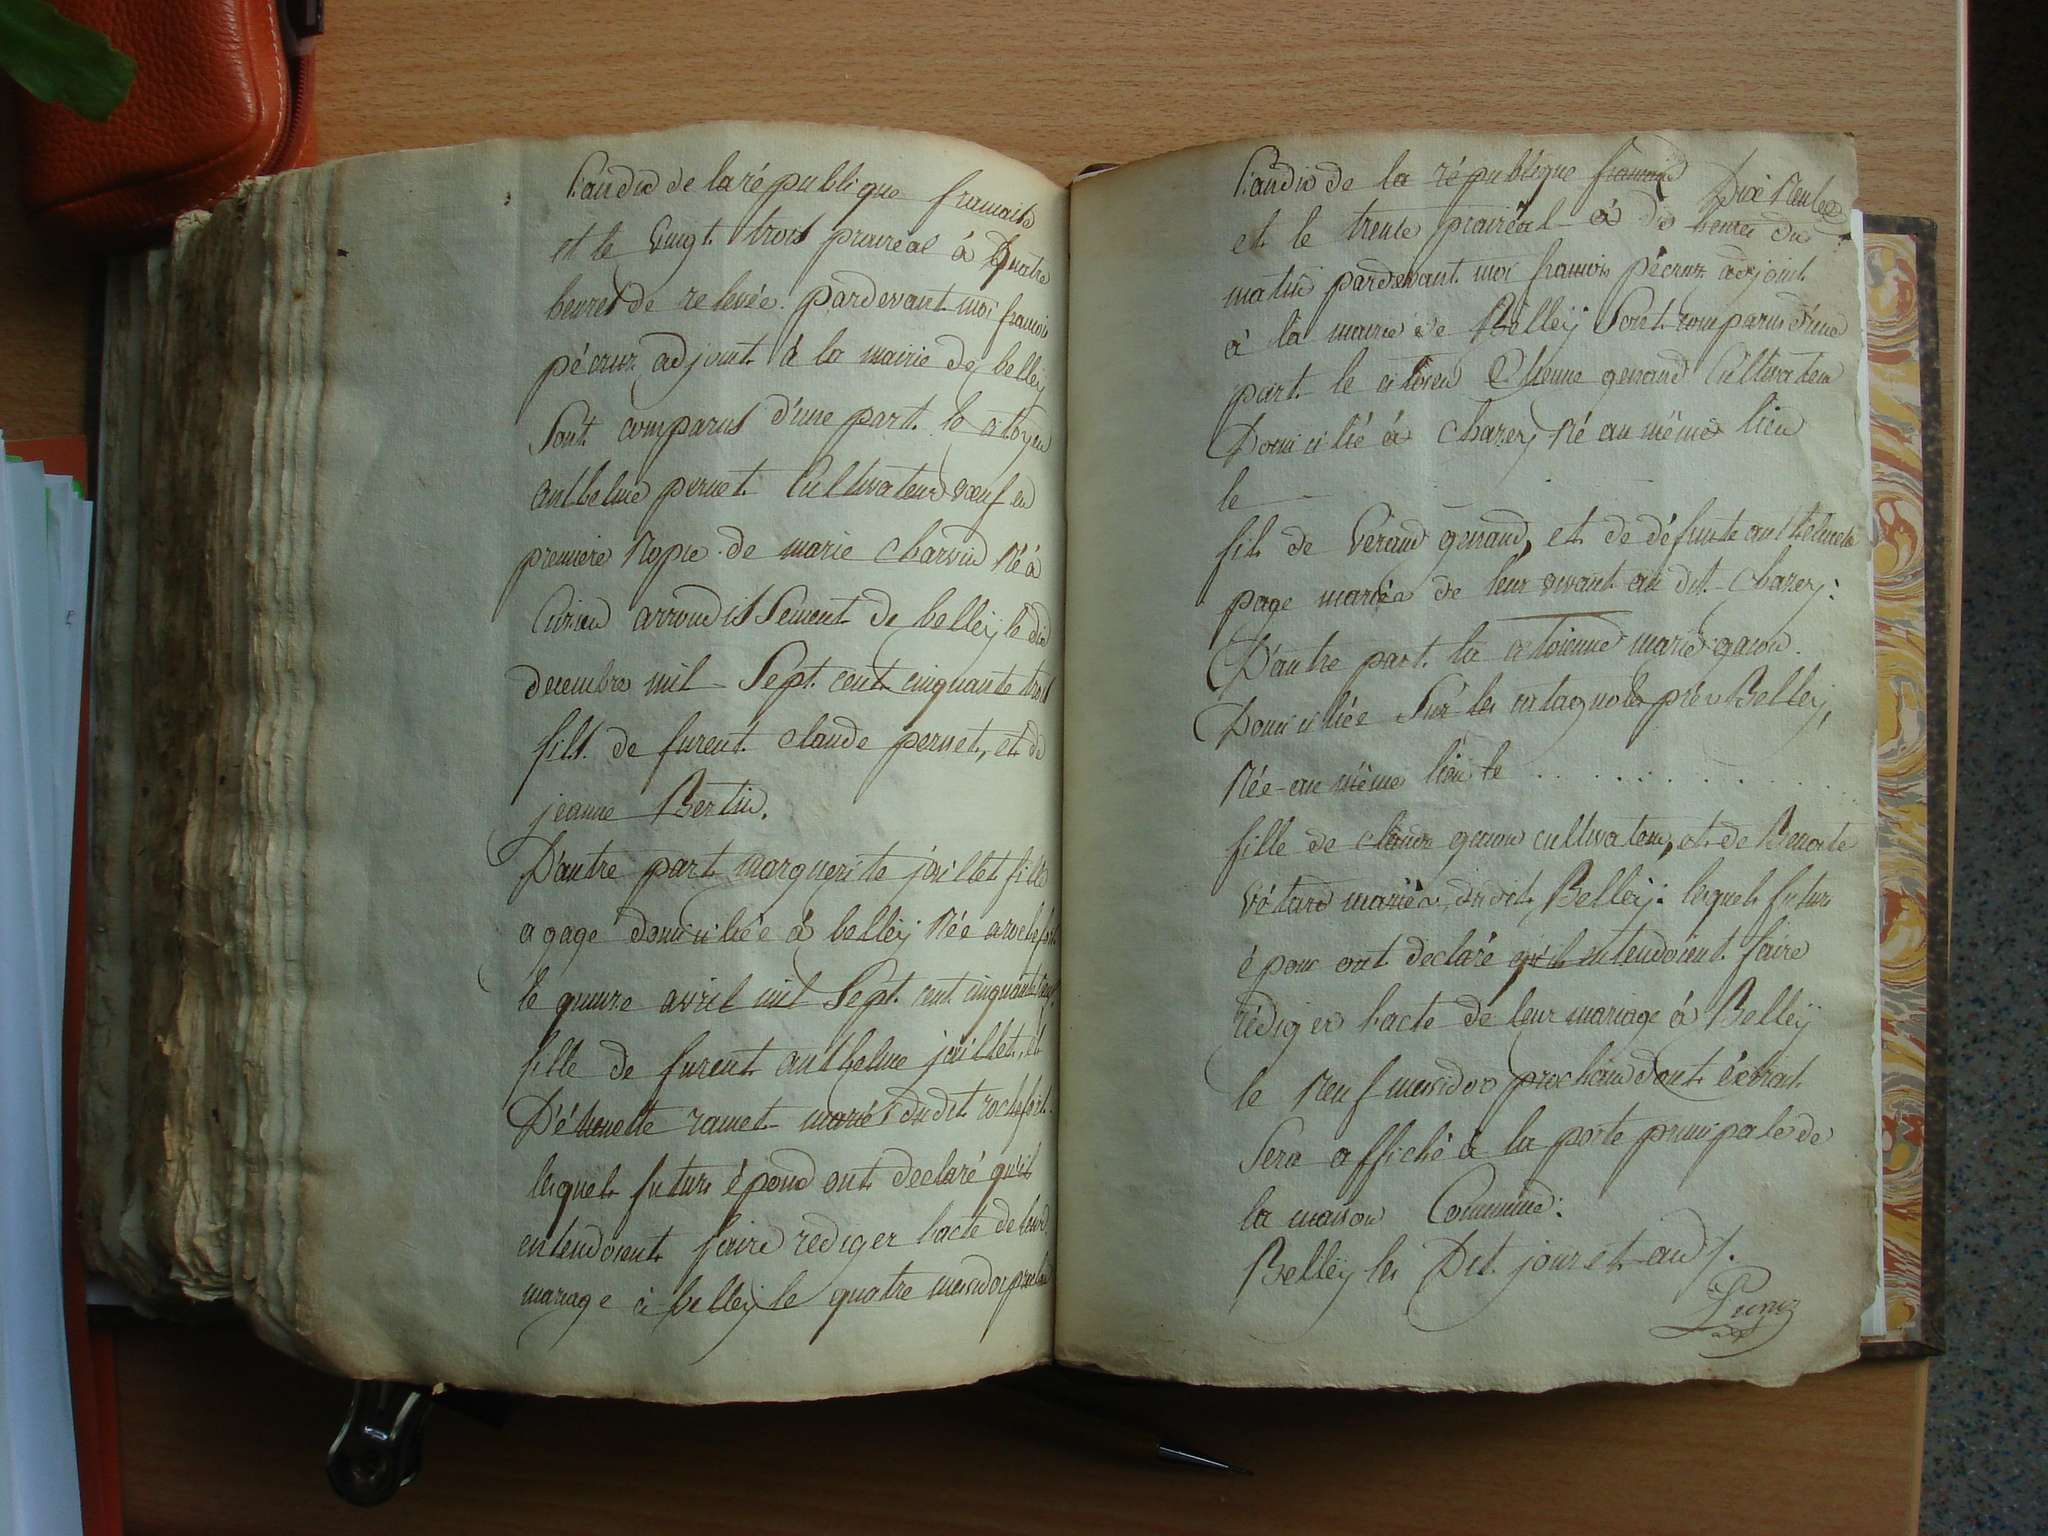 L'an dix de la république francaise
et le vingt trois prairéal à Quatre
heures de relevée. pardevant moi francois
pécruz adjoint à la mairie de belleÿ
Sont comparus d'une part le citoyen
anthelme pernet Cultivateur veuf en
premiere Nopce de marie charvin Né à
arrondissement de belleÿ le dix
decembre mil Sept cent cinquante trois
fils de furent claude pernet, et de
jeanne Bertin.
D'autre part marguerite jaillet fille
agagé domiciliée à belleÿ Née a rochefort
le quinze avril mil Sept cent cinquante
fille de furent anthelme jaillet, et
D'étiennette ramet mariés dudit rochefort
lesquels futurs époux ont declaré qu'il
entendoient faire rediger l'acte de leur
mariage à belleÿ le quatre messidor prochain
L'an dix de la république francaise
et le trente prairéal à dix heures du
matin pardevant moi francois pécruz adjoint
à la mairie de Belleÿ Sont comparus d'une
part le citoien Etienne genand Cultivateur
Domicilié à chazeÿ Né au même lieu
le
fils de genand, et de défunte anthelmete
page mariée de leur vivant au dit chazeÿ:
D'autre part la citoienne marie ganon
Domiciliée Sur les prés Belleÿ,
Née au même lieu le . . . . . . . . .
fille de claude ganon cultivateur, et de Benoite
mariés dudit Belleÿ: lesquels futurs
époux ont declaré qu'il entendoient faire
rédiger l'acte de leur mariage à Belleÿ
le Neuf messidor prochain dont éxtrait
Sera affiché à la porte principale de
la maison Commune:
Belleÿ les Dit jour et an /.